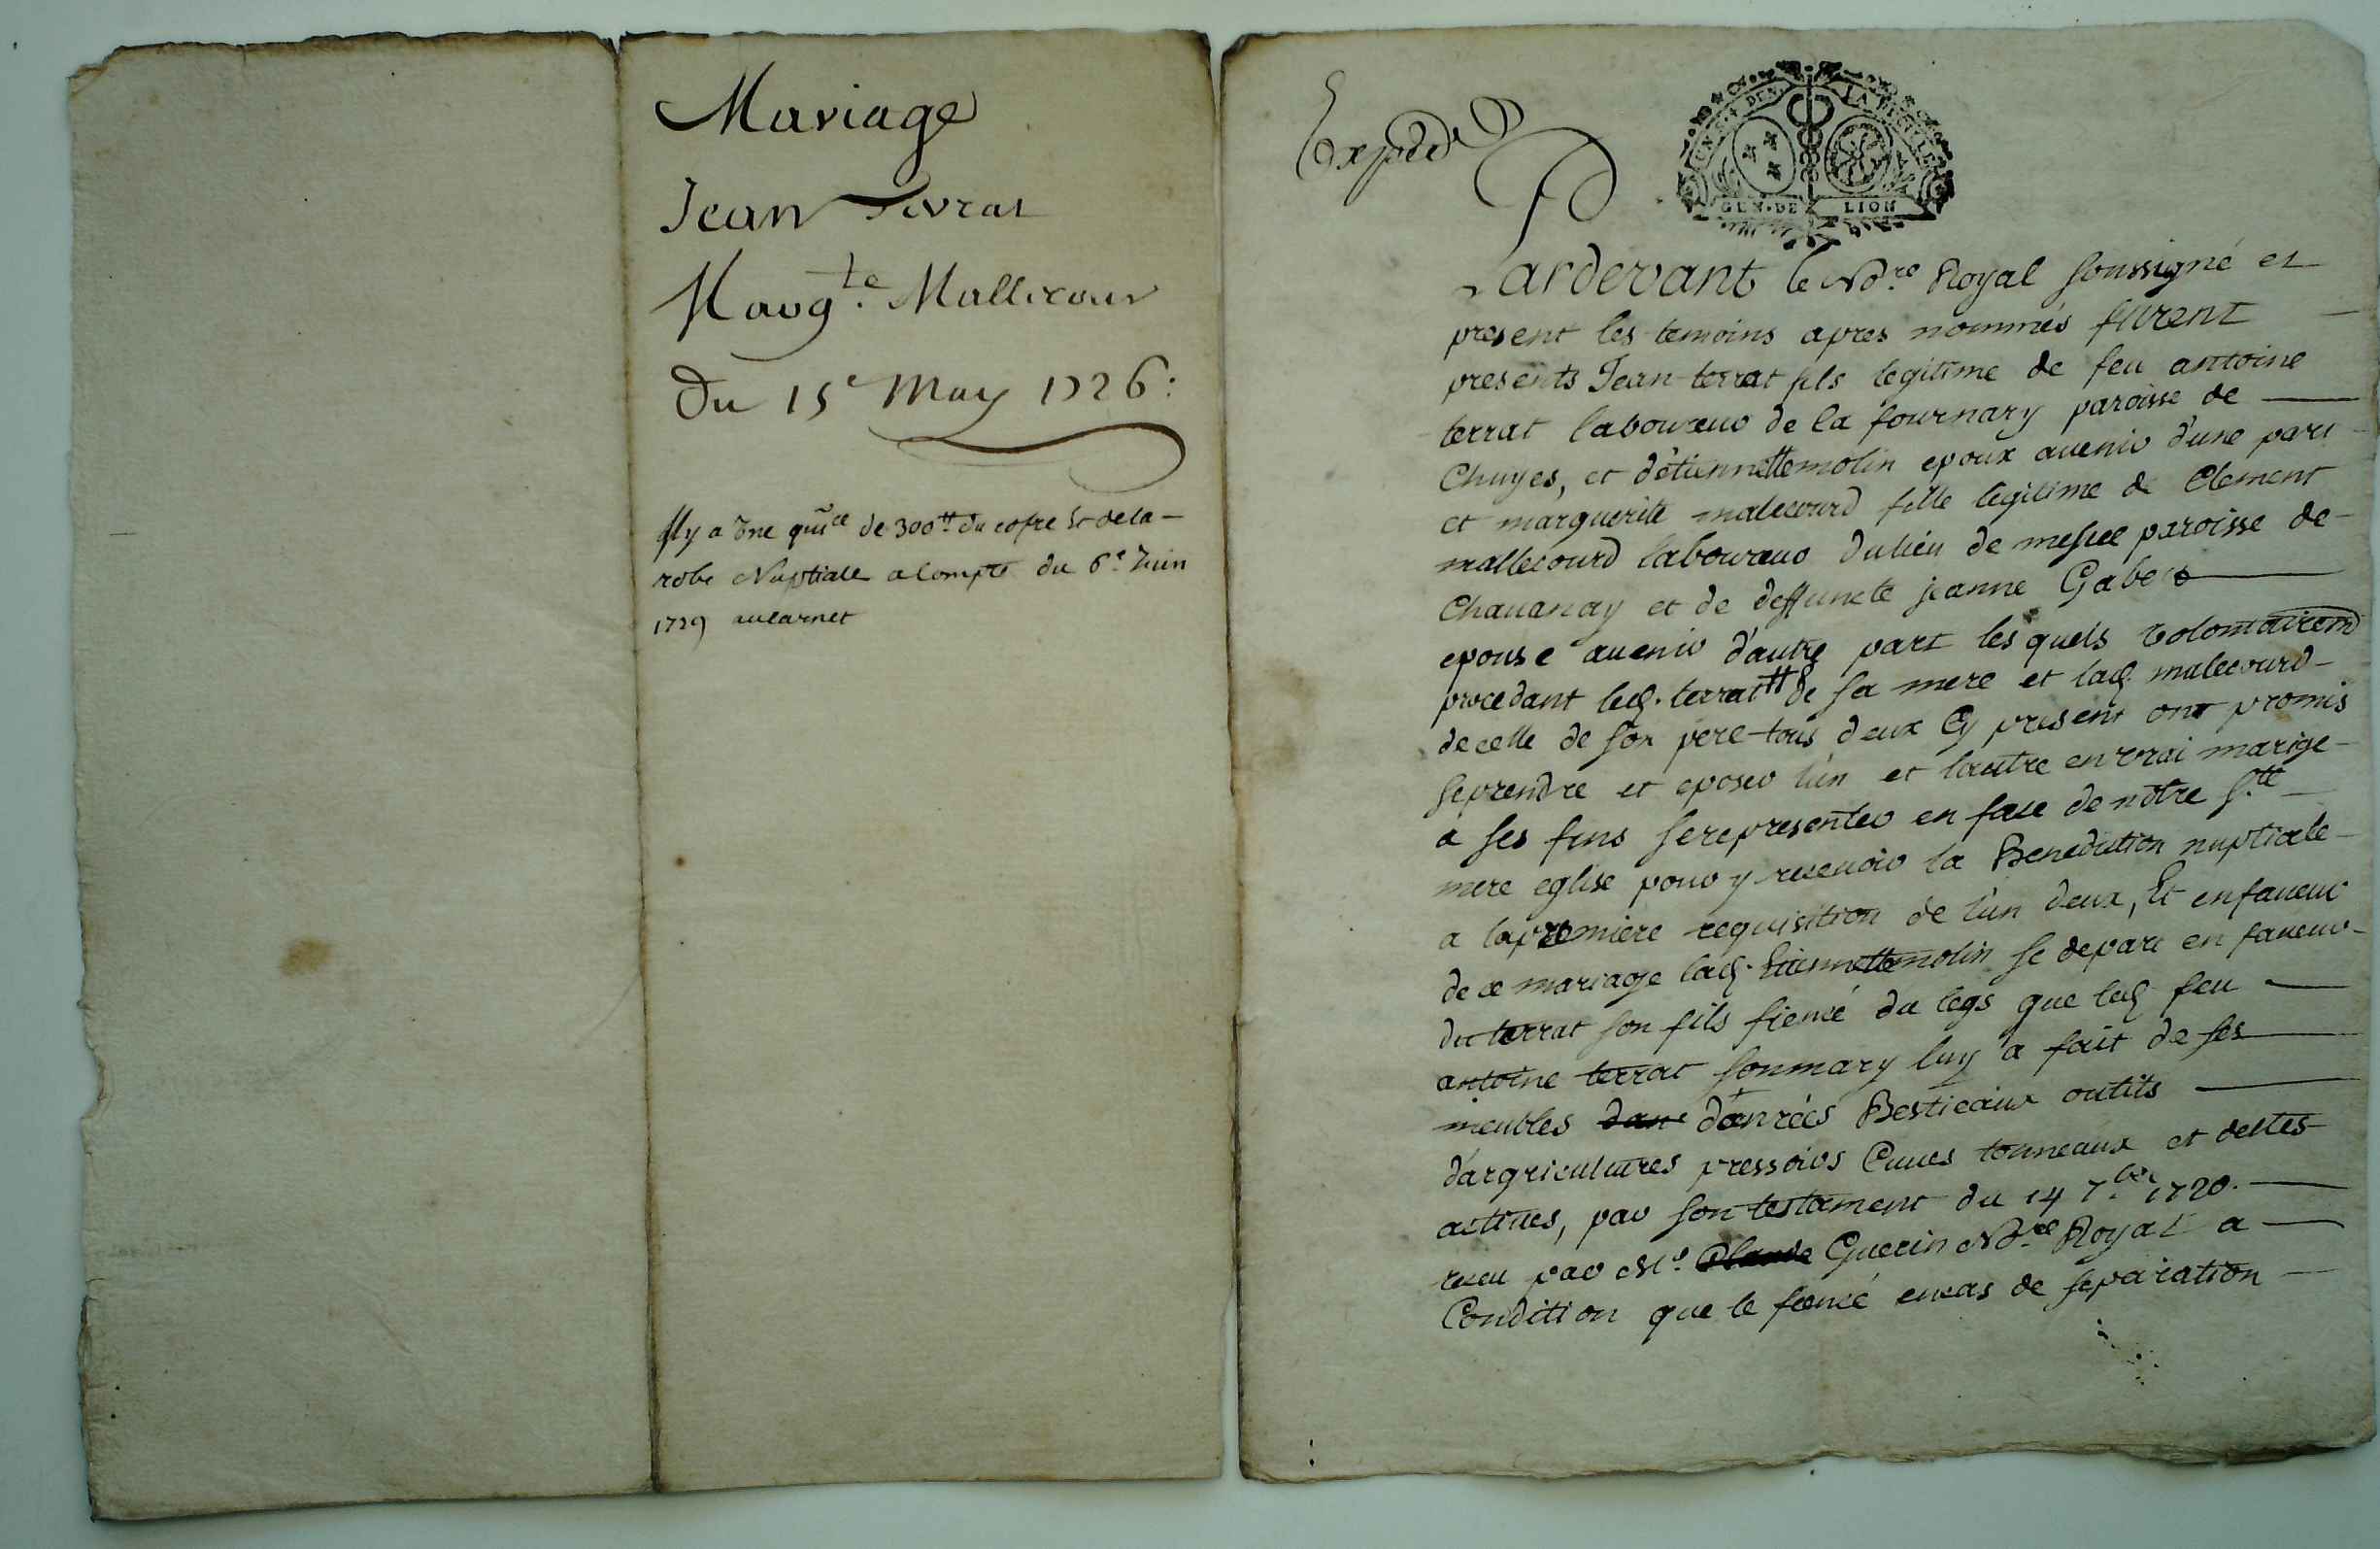 Mariage
Jean Terrat
Marg.te Mallecour
Du 15e May 1726:
Il y a une quice de 300tt du cofre et de la -
robe Nuptiale a compte du 6e Juin
1729 au carnet
Expedié
GEN. DE LION
Pardevant le No.re Royal soussigné et
present les temoins apres nommés furent
presents Jean terrat fils legitime de feu antoine
terrat laboureur de la fournary paroisse de
Chuyes, et d'étiennette molin epoux avenir d'une part
et marguerite malecourd fille legitime de Clement
mallecourd laboureur du lieu de paroisse de
Chavanay et de deffuncte jeanne Gabert
epouse avenir d'autre part les quels volontairemt
procedant led. terrat de sa mere et lad. malecourd
de celle de son pere tous deux cy present ont promis
se prendre et eposer l'un et lautre en vrai marige
a ses fins se representer en face de notre s.te
mere eglise pour y recevoir la Benediction nuptiale
a la premiere requisition de l'un deux, Et en faveur
de ce mariage lad. Etiennette molin se depart en faveur
du terrat son fils fiencé du legs que led. feu
antoine terrat son mary luy a fait de ses
meubles dan danrées Bestieaux outils
d'argricultures pressoirs Cuves tonneaux et dettes
actives, par son testament du 14 7.bre 1720.
receu par Me. Claude Guerin No.re Royal a
Condition que le fiencé en cas de separation